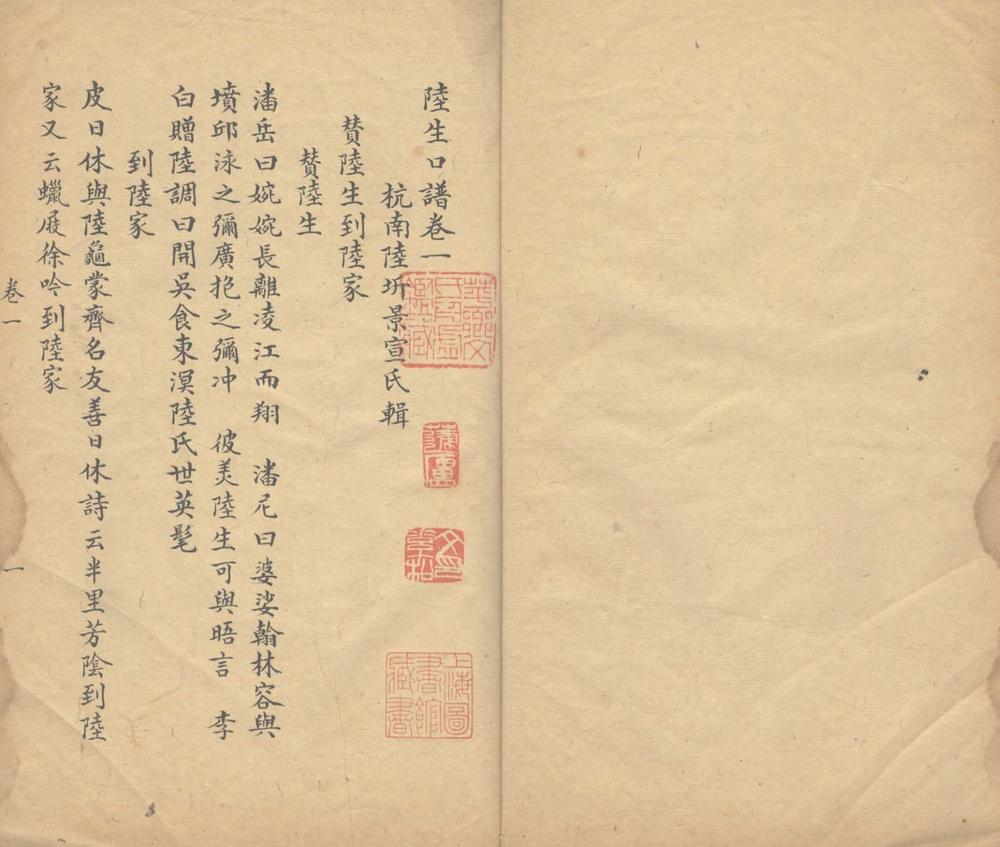 陸生口譜卷一
杭南陸圻景宣氏輯
賛陸生到陸家
賛陸生
潘岳曰婉婉長離凌江而翔　潘尼曰婆娑翰林容與
墳邱泳之彌廣挹之彌冲　彼美陸生可與晤言　李
白贈陸調曰開吳食東溟陸氏世英髦
到陸家
皮日休與陸龜蒙齊名友善日休詩云半里芳陰到陸
家又云蠟屐徐吟到陸家
卷一
一
上海圖書館藏書